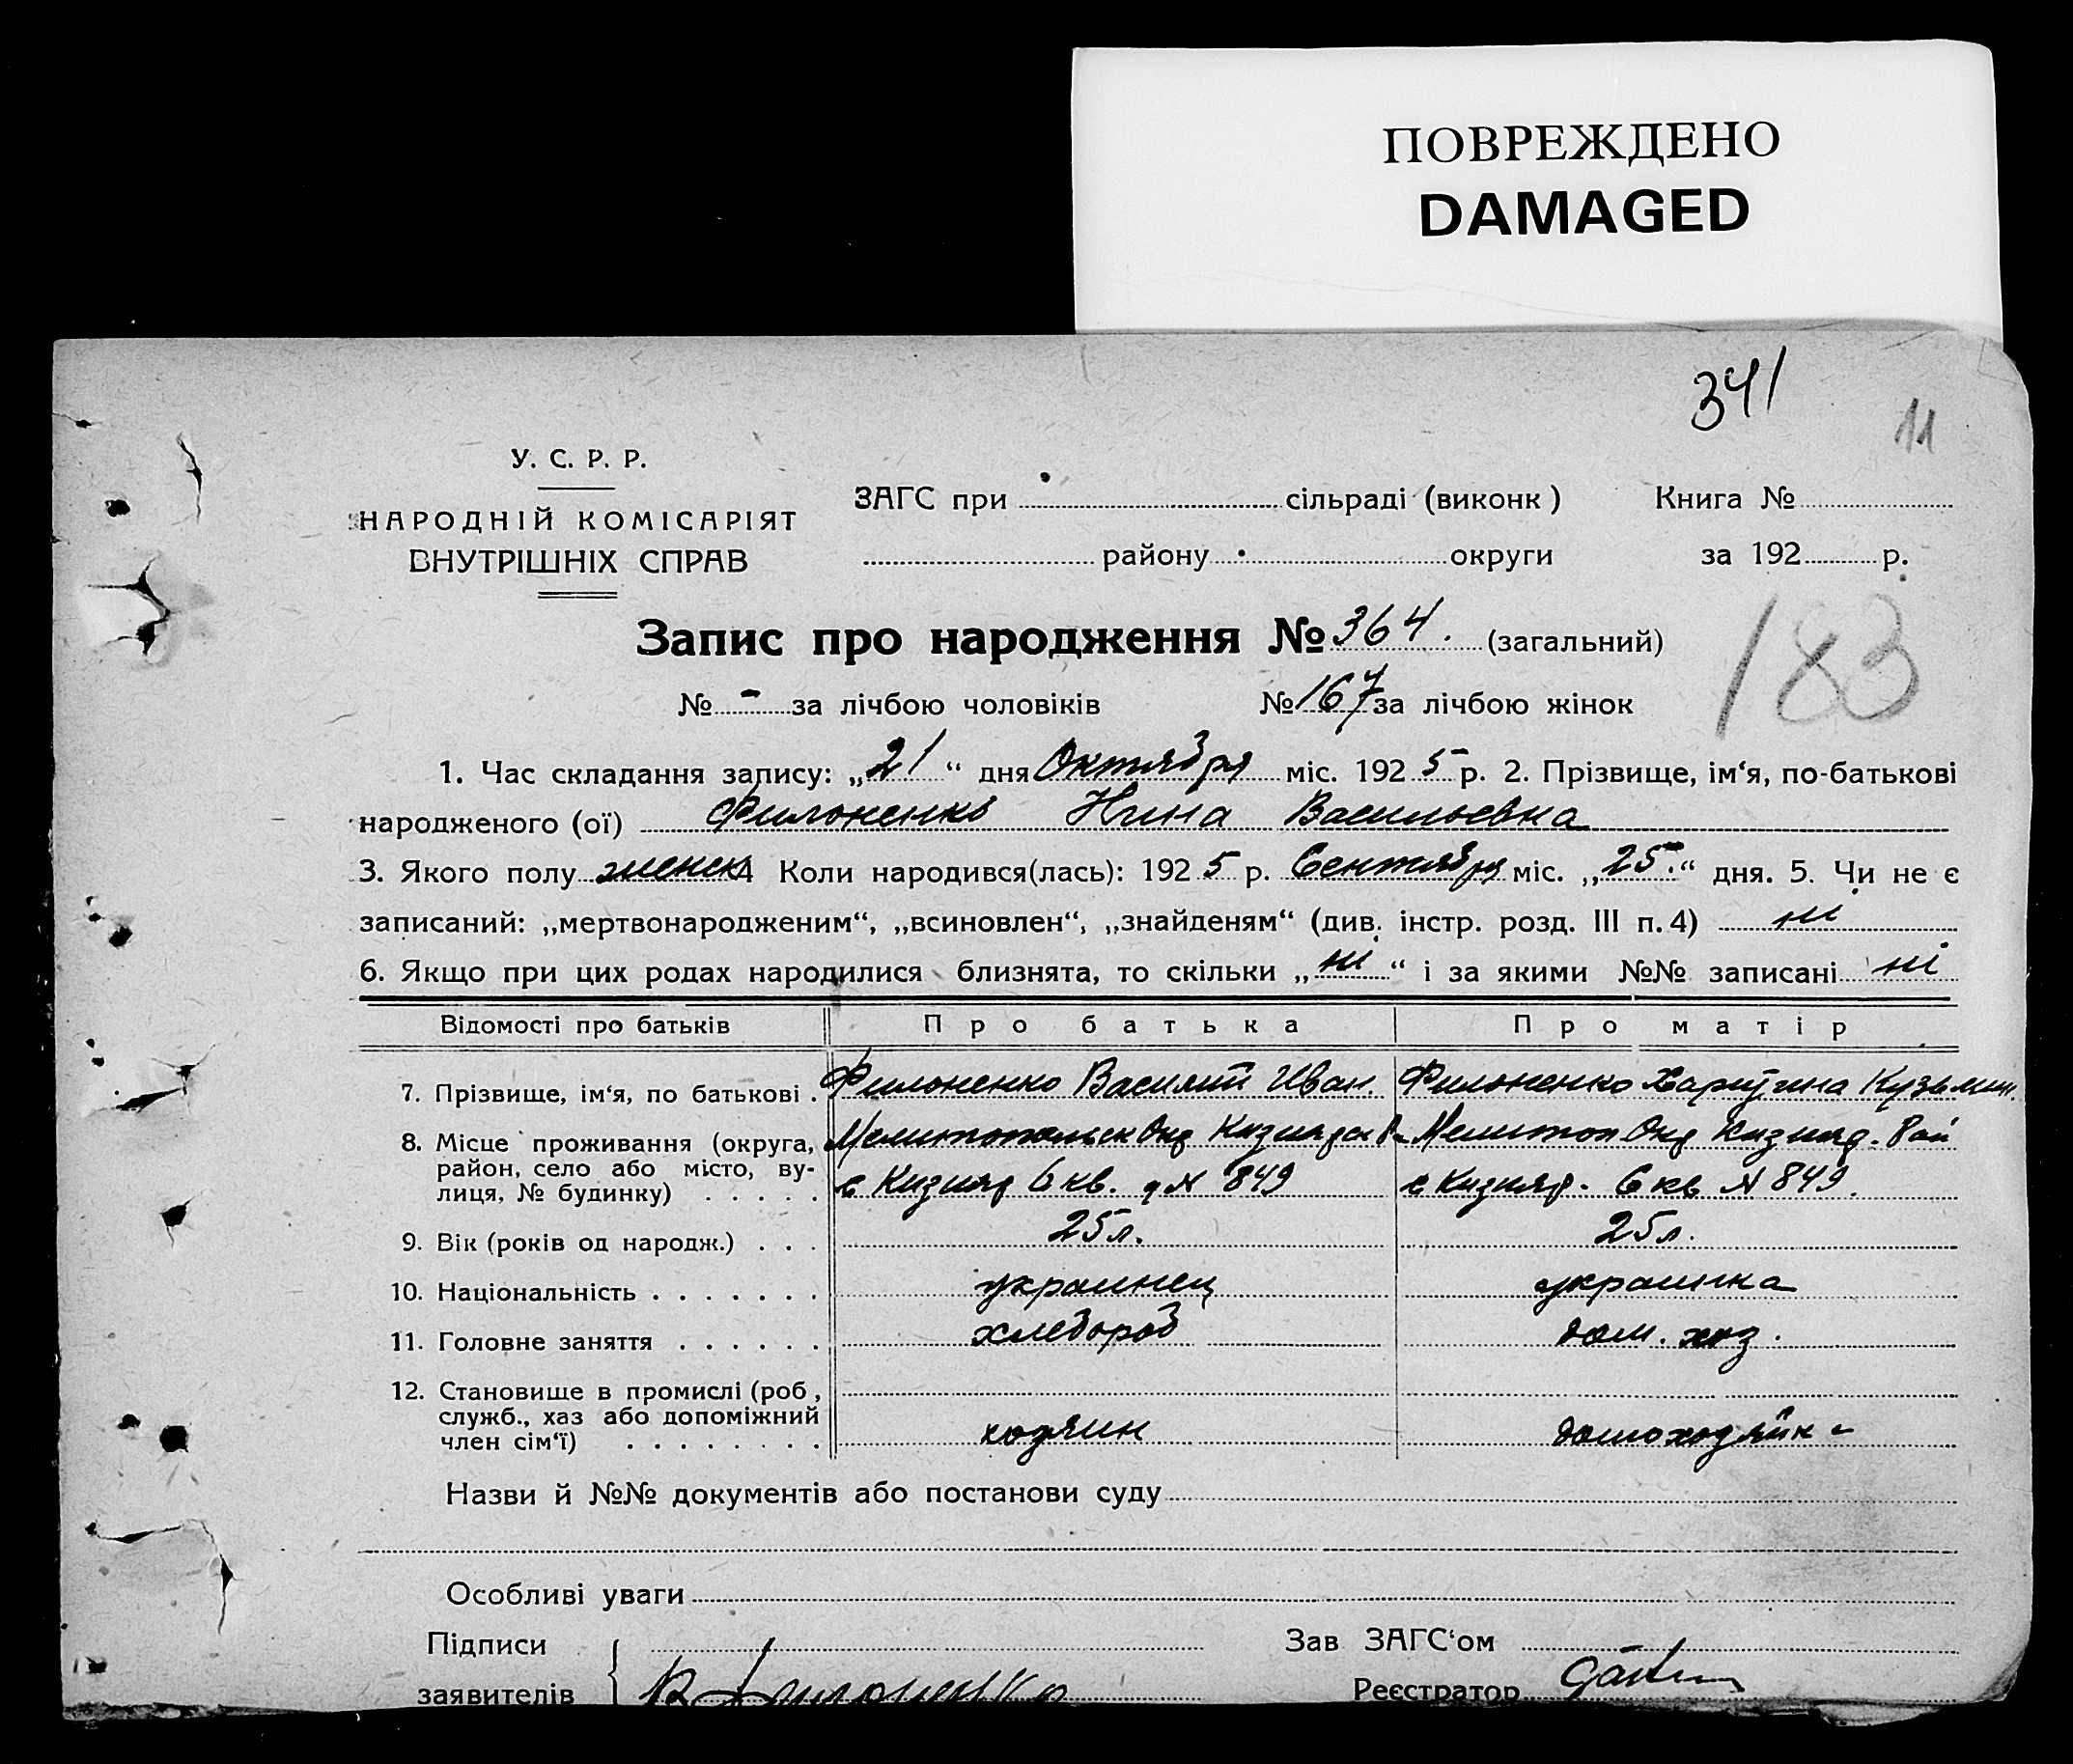 ПОВРЕЖДЕНО
DAMAGED
341
11
У. С. Р. Р.
НАРОДНІЙ КОМІСАРІЯТ
ВНУТРІШНІХ СПРАВ
ЗАГС при сільраді (виконк) Книга №
району округи за 192 р.
Запис про народження № 364. (загальний)
183
№ - за лічбою чоловіків № 167 за лічбою жінок
1. Час складання запису: „21“ дня Октября міс. 1925 р. 2. Прізвище, ім‘я, по-батькові
народженого (ої) Филоненко Нина Васильевна
3. Якого полу женск 4 Коли народився(лась): 1925 р. Сентября міс. „25.“ дня. 5. Чи не є
записаний: „мертвонародженим“, „всиновлен“, „знайденям“ (див. інстр. розд. III п. 4) ні
6. Якщо при цих родах народилися близнята, то скільки „ні“ і за якими №№ записані ні
Відомості про батьків Про батька Про матір
7. Прізвище, ім‘я, по батькові . Филоненко Василий Иван. Филоненко Харитина Кузьмин.
8. Місце проживання (округа, Мелитопольск Окр Кизияр Мелитоп Окр Кизияр. Рай
район, село або місто, ву-
лиця, № будинку) . . . . . с Кизияр 6 кв. д № 849 с Кизияр. 6 кв № 849.
9. Вік (років од народж.) . . . 25 л. 25 л.
10. Національність . . . . . . . украинец украинка
11. Головне заняття . . . . . . хлебороб дом. хоз.
12. Становище в промислі (роб,
служб., хаз або допоміжний
член сім‘ї) . . . . . . . . хозяин домохозяйк
Назви й №№ документів або постанови суду
Особливі уваги
Підписи Зав ЗАГС‘ом
заявителів В Филоненко Реєстратор